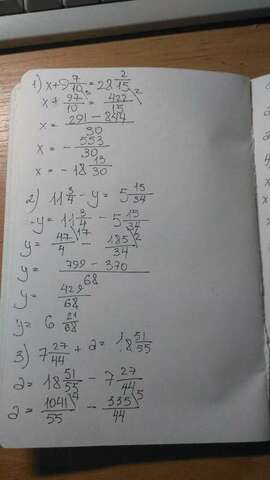 1) x + 9 7/10 = 28 2/15
x + 97/10 \3 = 422/15 \2
x = 291 - 844 / 30
x = - 553/30
x = - 18 13/30
2) 11 3/4 - y = 5 15/34
-y = 11 3/4 - 5 15/34
y = 47/4 \17 - 185/34 \2
y = 799 - 370 / 68
y = 429/68
y = 6 21/68
3) 7 27/44 + a = 18 51/55
a = 18 51/55 - 7 27/44
a = 1041/55 \4 - 335/44 \5